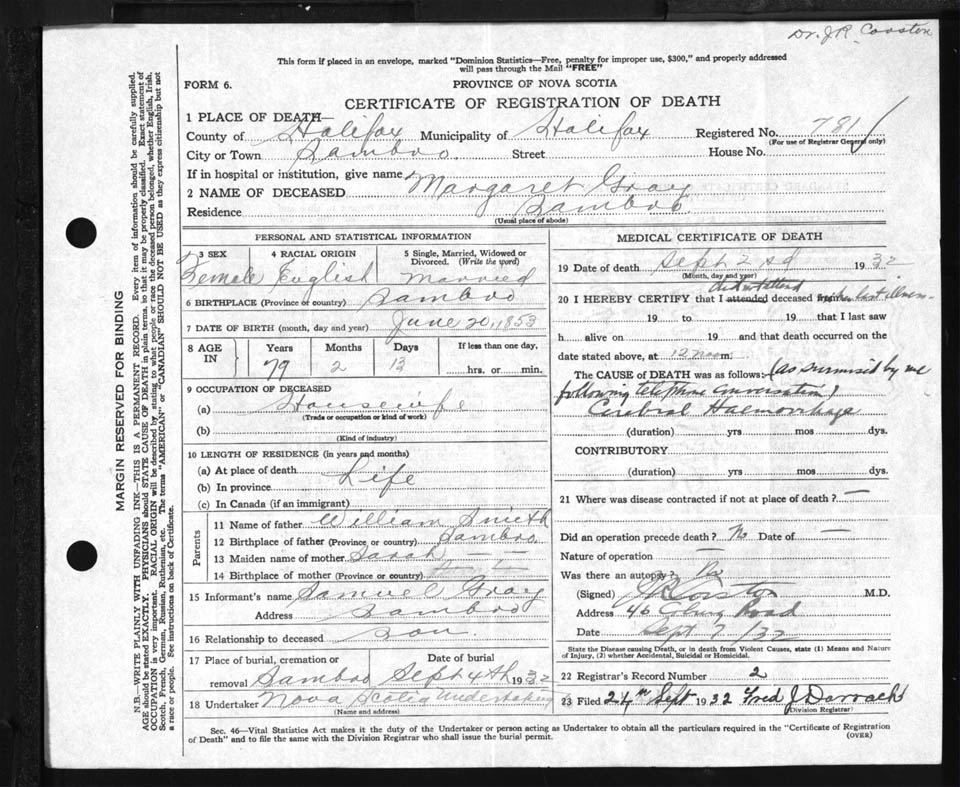 Dr. J.R. Corston
This form if placed in an envelope, marked "Dominion Statistics—Free, penalty for improper use, $300," and properly addressed
will pass through the Mail "FREE"
FORM 6.
PROVINCE OF NOVA SCOTIA
CERTIFICATE OF REGISTRATION OF DEATH
1 PLACE OF DEATH—
County of Halifax Municipality of Halifax Registered No. 781
(For use of Registrar General only)
City or Town Sambro. Street House No.
If in hospital or institution, give name
2 NAME OF DECEASED Margaret Gray
Residence Sambro
(Usual place of abode)
PERSONAL AND STATISTICAL INFORMATION
3 SEX 4 RACIAL ORIGIN 5 Single, Married, Widowed or
Divorced. (Write the word)
Female English Married
6 BIRTHPLACE (Province or country) Sambro
7 DATE OF BIRTH (month, day and year) June 20, 1853
8 AGE IN Years Months Days If less than one day,
79 2 13 hrs. or min.
9 OCCUPATION OF DECEASED
(a) Housewife
(Trade or occupation or kind of work)
(b)
(Kind of industry)
10 LENGTH OF RESIDENCE (in years and months)
(a) At place of death
(b) In province Life
(c) In Canada (if an immigrant)
Parents
11 Name of father William Smith
12 Birthplace of father (Province or country) Sambro
13 Maiden name of mother Sarah — —
14 Birthplace of mother (Province or country)
15 Informant's name Samuel Gray
Address Sambro
16 Relationship to deceased Son.
17 Place of burial, cremation or Date of burial
removal Sambro Sept 4th 1932
18 Undertaker Nova Scotia Undertaking
(Name and address)
MEDICAL CERTIFICATE OF DEATH
19 Date of death Sept 2nd 1932
(Month, day and year)
did not attend
20 I HEREBY CERTIFY that I attended deceased from in her last illness
19 to 19 that I last saw
h alive on 19 and that death occurred on the
date stated above, at 12 noon m.
The CAUSE of DEATH was as follows:- (as surmised by me
following telephone conversation)
Cerebral Haemorrhage
(duration) yrs mos dys.
CONTRIBUTORY
(duration) yrs mos dys.
21 Where was disease contracted if not at place of death? —
Did an operation precede death? No Date of —
Nature of operation —
Was there an autopsy? No
(Signed) JR Corston M.D.
Address 46 Coburg Road
Date Sept 7/32
State the Disease causing Death, or in death from Violent Causes, state (1) Means and Nature
of Injury, (2) whether Accidental, Suicidal or Homicidal.
22 Registrar's Record Number 2
23 Filed 24th Sept 1932 Fred J Darrach
Division Registrar)
Sec. 46—Vital Statistics Act makes it the duty of the Undertaker or person acting as Undertaker to obtain all the particulars required in the "Certificate of Registration
of Death" and to file the same with the Division Registrar who shall issue the burial permit.
(OVER)
MARGIN RESERVED FOR BINDING
N.B.—WRITE PLAINLY WITH UNFADING INK—THIS IS A PERMANENT RECORD. Every item of information should be carefully supplied.
AGE should be stated EXACTLY. PHYSICIANS should STATE CAUSE OF DEATH in plain terms, so that it may be properly classified. Exact statement of
OCCUPATION is very important. RACIAL ORIGIN will be described by stating to what people or race the deceased person belonged, whether English, Irish,
Scotch, French, German, Russian, Ruthenian, etc. The terms "AMERICAN" or "CANADIAN" SHOULD NOT BE USED as they express citizenship but not
a race or people. See instructions on back of Certificate.